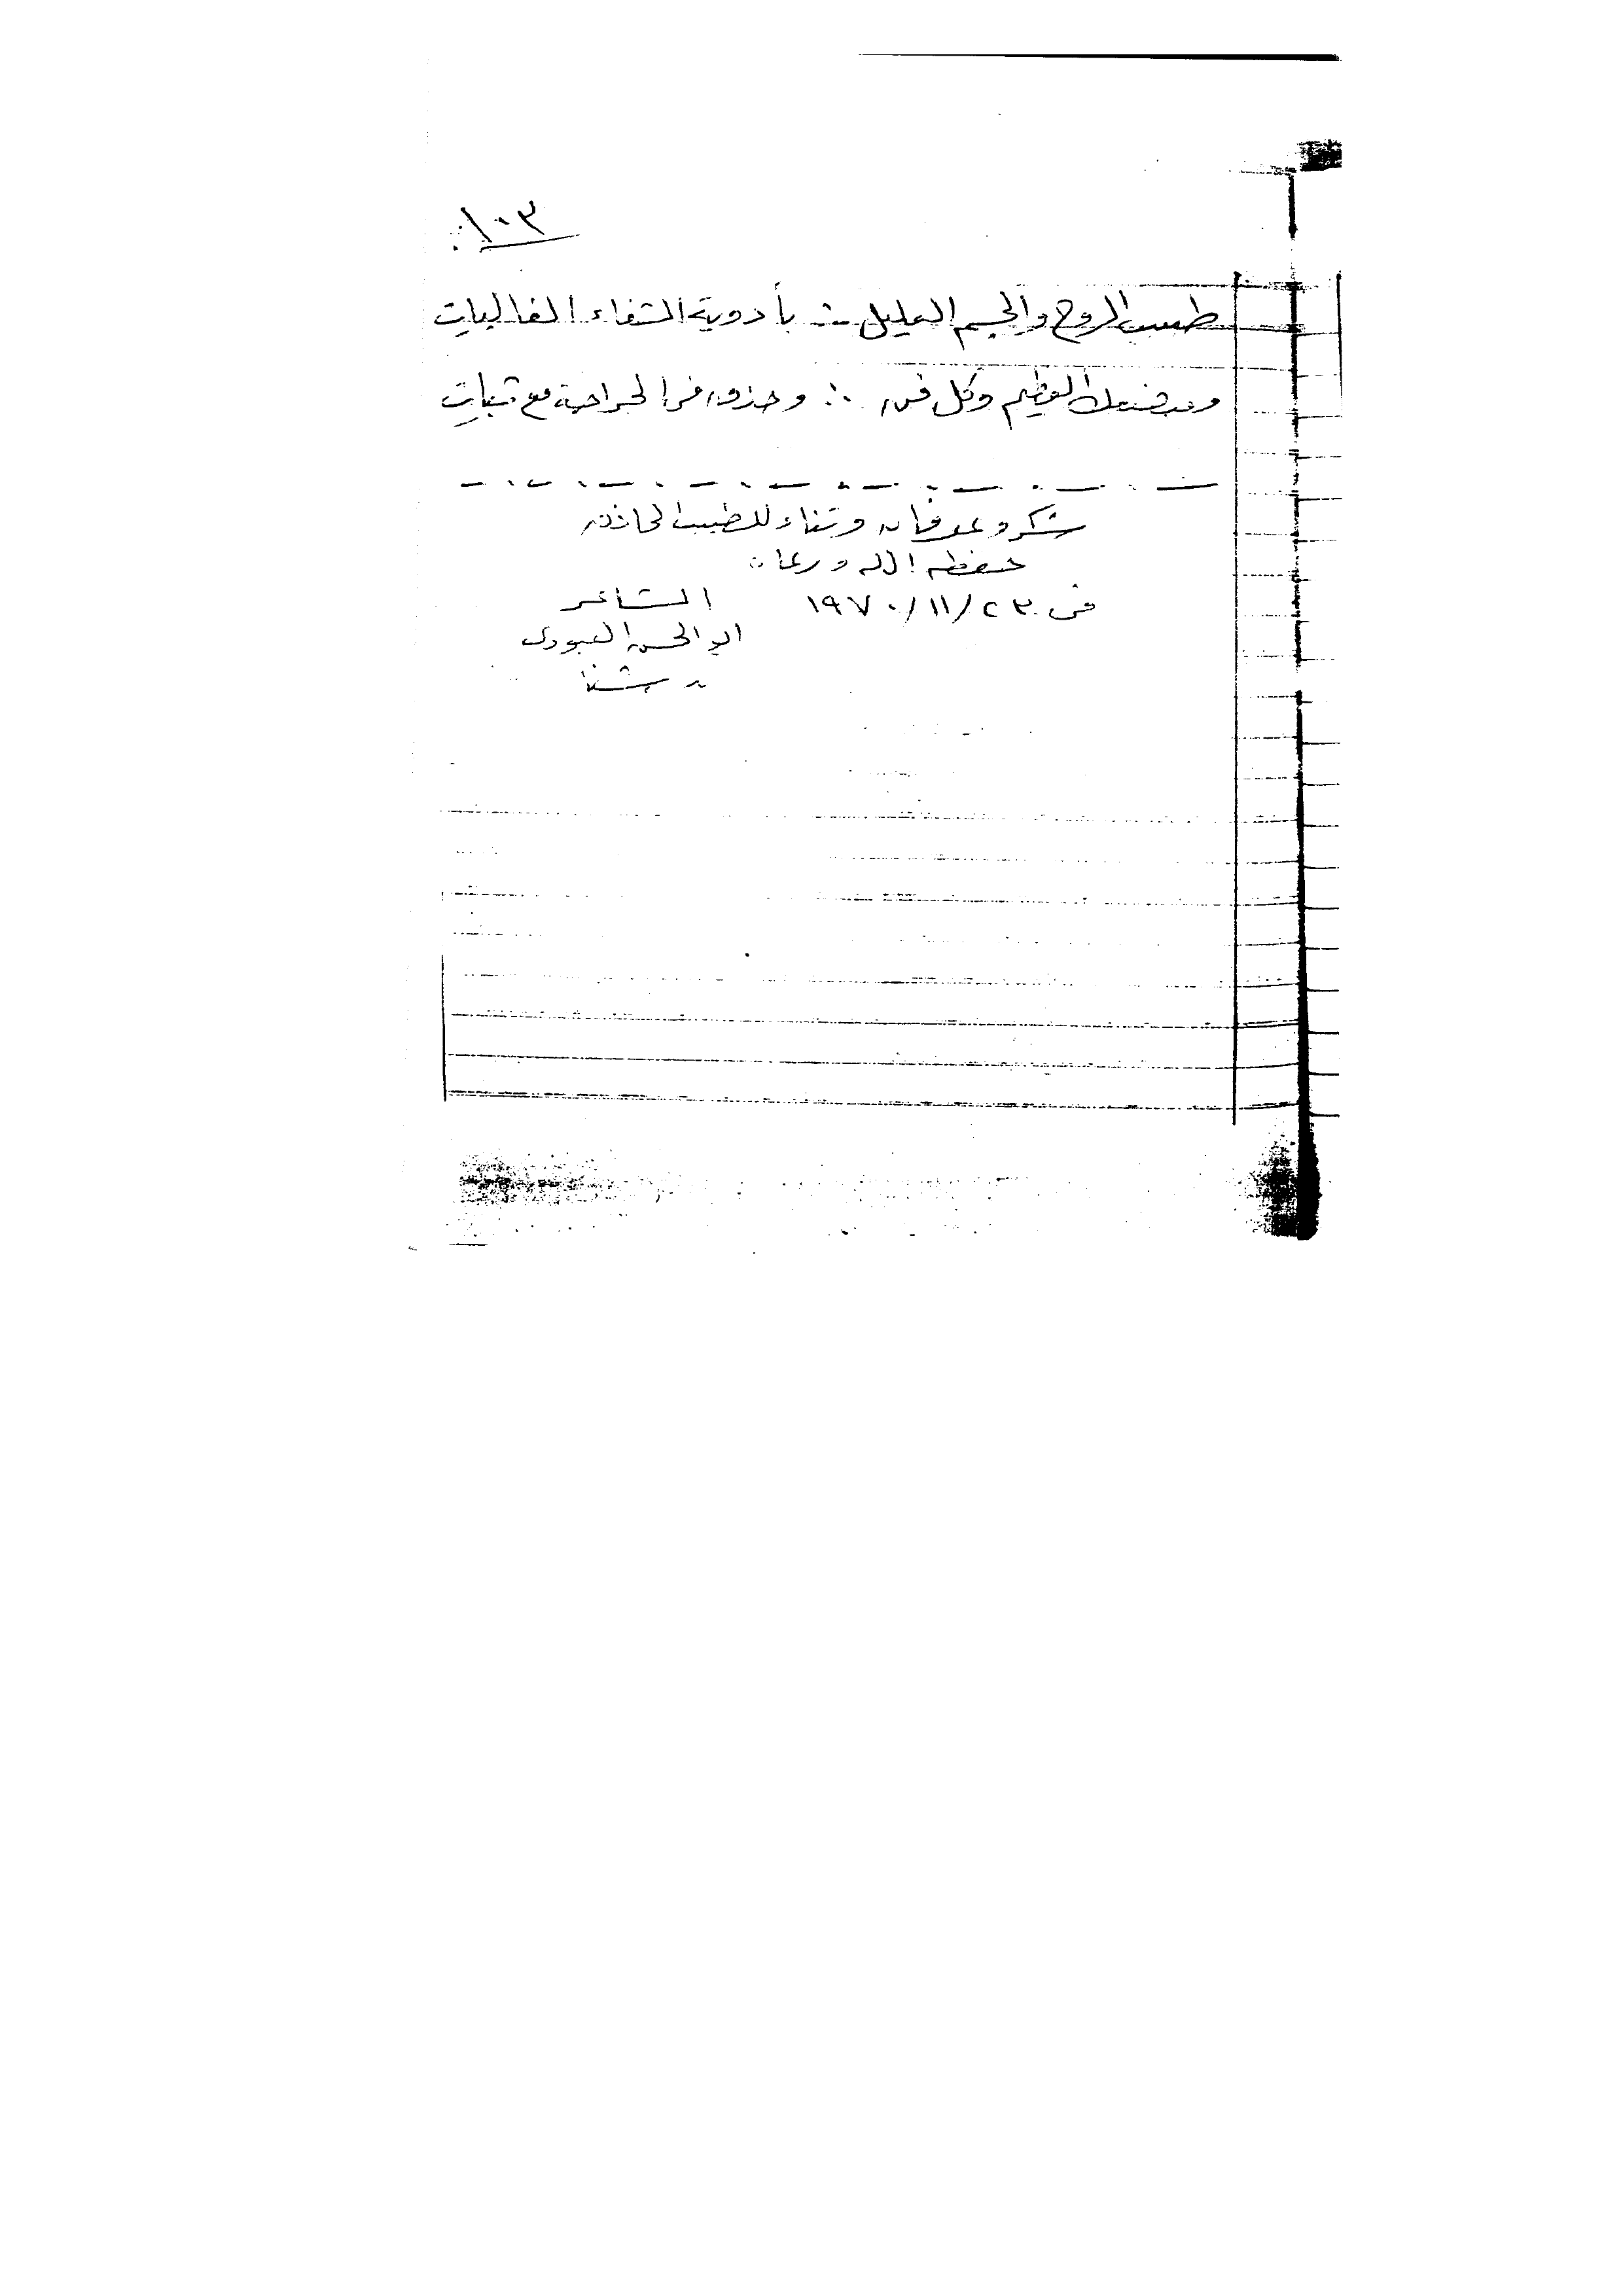 ١٠٣
طبيب الروح والجسم العليل ∴ بأدوية الشفاء الغاليات
العظيم وكل فن ∴ وحذق فى الجراحة مع ثبات
شكر وعرفان وثناء للطبيب الحاذق
حفظه الله ورعاه
فى ٢٣/١١/١٩٧٠ الشاعر
ابو الحسن العبودى